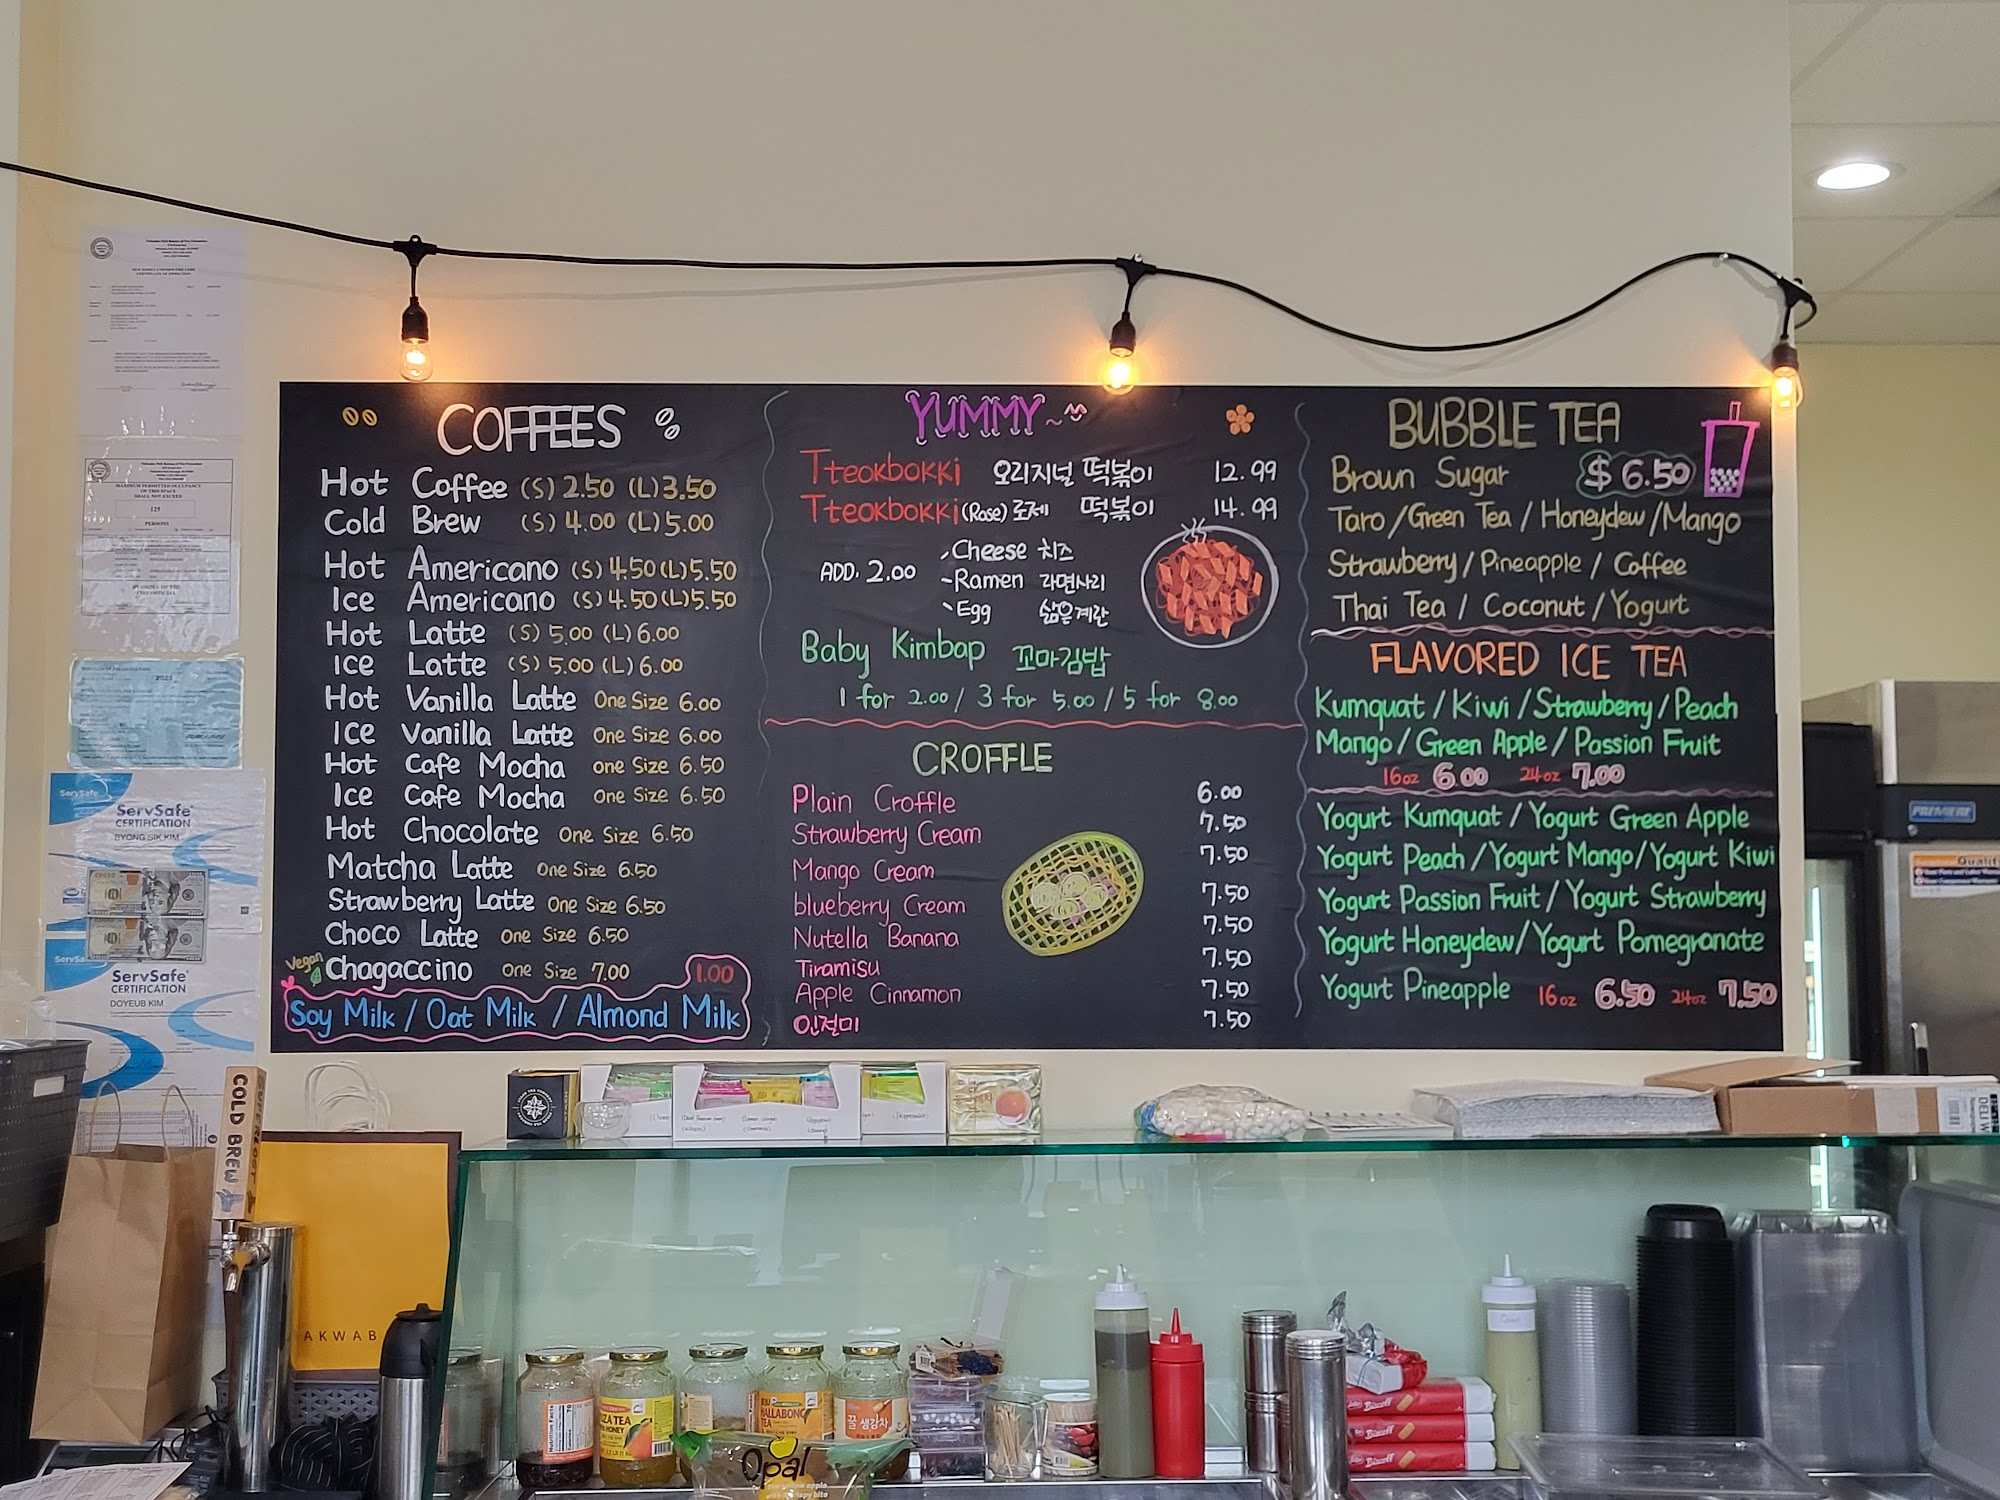 COFFEES
Hot Coffee (S) 2.50 (L) 3.50
Cold Brew (S) 4.00 (L) 5.00
Hot Americano (S) 4.50 (L) 5.50
Ice Americano (S) 4.50 (L) 5.50
Hot Latte (S) 5.00 (L) 6.00
Ice Latte (S) 5.00 (L) 6.00
Hot Vanilla Latte One Size 6.00
Ice Vanilla Latte One Size 6.00
Hot Cafe Mocha one Size 6.50
Ice Cafe Mocha one Size 6.50
Hot Chocolate One Size 6.50
Matcha Latte One Size 6.50
Strawberry Latte One Size 6.50
Choco Latte One Size 6.50
Vegan Chagaccino One Size 7.00
1.00
Soy Milk / Oat Milk / Almond Milk
YUMMY~
Tteokbokki 오리지널 떡볶이 12.99
Tteokbokki (Rose) 로제 떡볶이 14.99
ADD. 2.00
Cheese 치즈
-Ramen 라면사리
Egg 삶은계란
Baby Kimbap 꼬마김밥
1 for 2.00 / 3 for 5.00 / 5 for 8.00
CROFFLE
Plain Croffle 6.00
Strawberry Cream 7.50
Mango Cream 7.50
blueberry Cream 7.50
Nutella Banana 7.50
Tiramisu 7.50
Apple Cinnamon 7.50
인절미 7.50
BUBBLE TEA
Brown Sugar $6.50
Taro / Green Tea / Honeydew / Mango
Strawberry / Pineapple / Coffee
Thai Tea / Coconut / Yogurt
FLAVORED ICE TEA
Kumquat / Kiwi / Strawberry / Peach
Mango / Green Apple / Passion Fruit
16oz 6.00 24oz 7.00
Yogurt Kumquat / Yogurt Green Apple
Yogurt Peach / Yogurt Mango / Yogurt Kiwi
Yogurt Passion Fruit / Yogurt Strawberry
Yogurt Honeydew / Yogurt Pomegranate
Yogurt Pineapple 16oz 6.50 24oz 7.50
MAXIMUM PERMITTED OCCUPANCY
OF THIS SPACE
SHALL NOT EXCEED
125
PERSONS
2023
ServSafe
ServSafe
CERTIFICATION
BYONG SIK KIM
ServSafe
CERTIFICATION
DOYEUB KIM
PREMIERE
COLD BREW
AKWAB
Nutrition Facts
70
TEA
HONEY
HALLABONG
TEA
꿀생강차
Opal
Biscoff
Biscoff
Biscoff